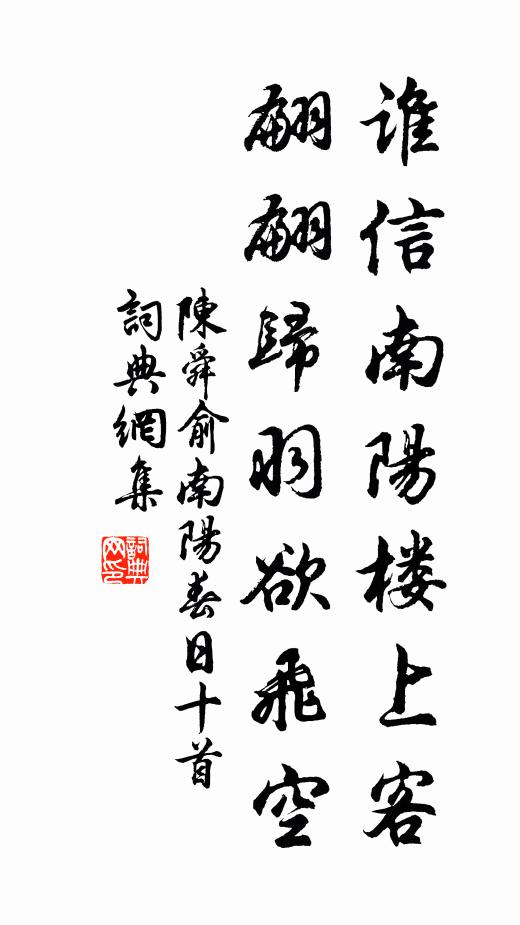 谁信南陽楼上客
翩翩歸羽欲飛空
陳舜俞南陽春日十首
詞典網集
詞典
网印